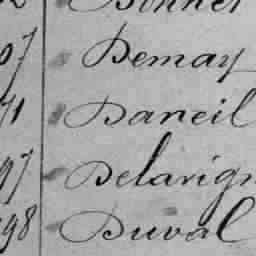 Bonnet
07 Demay
71 Dareil
97 Delavign
98 Duval